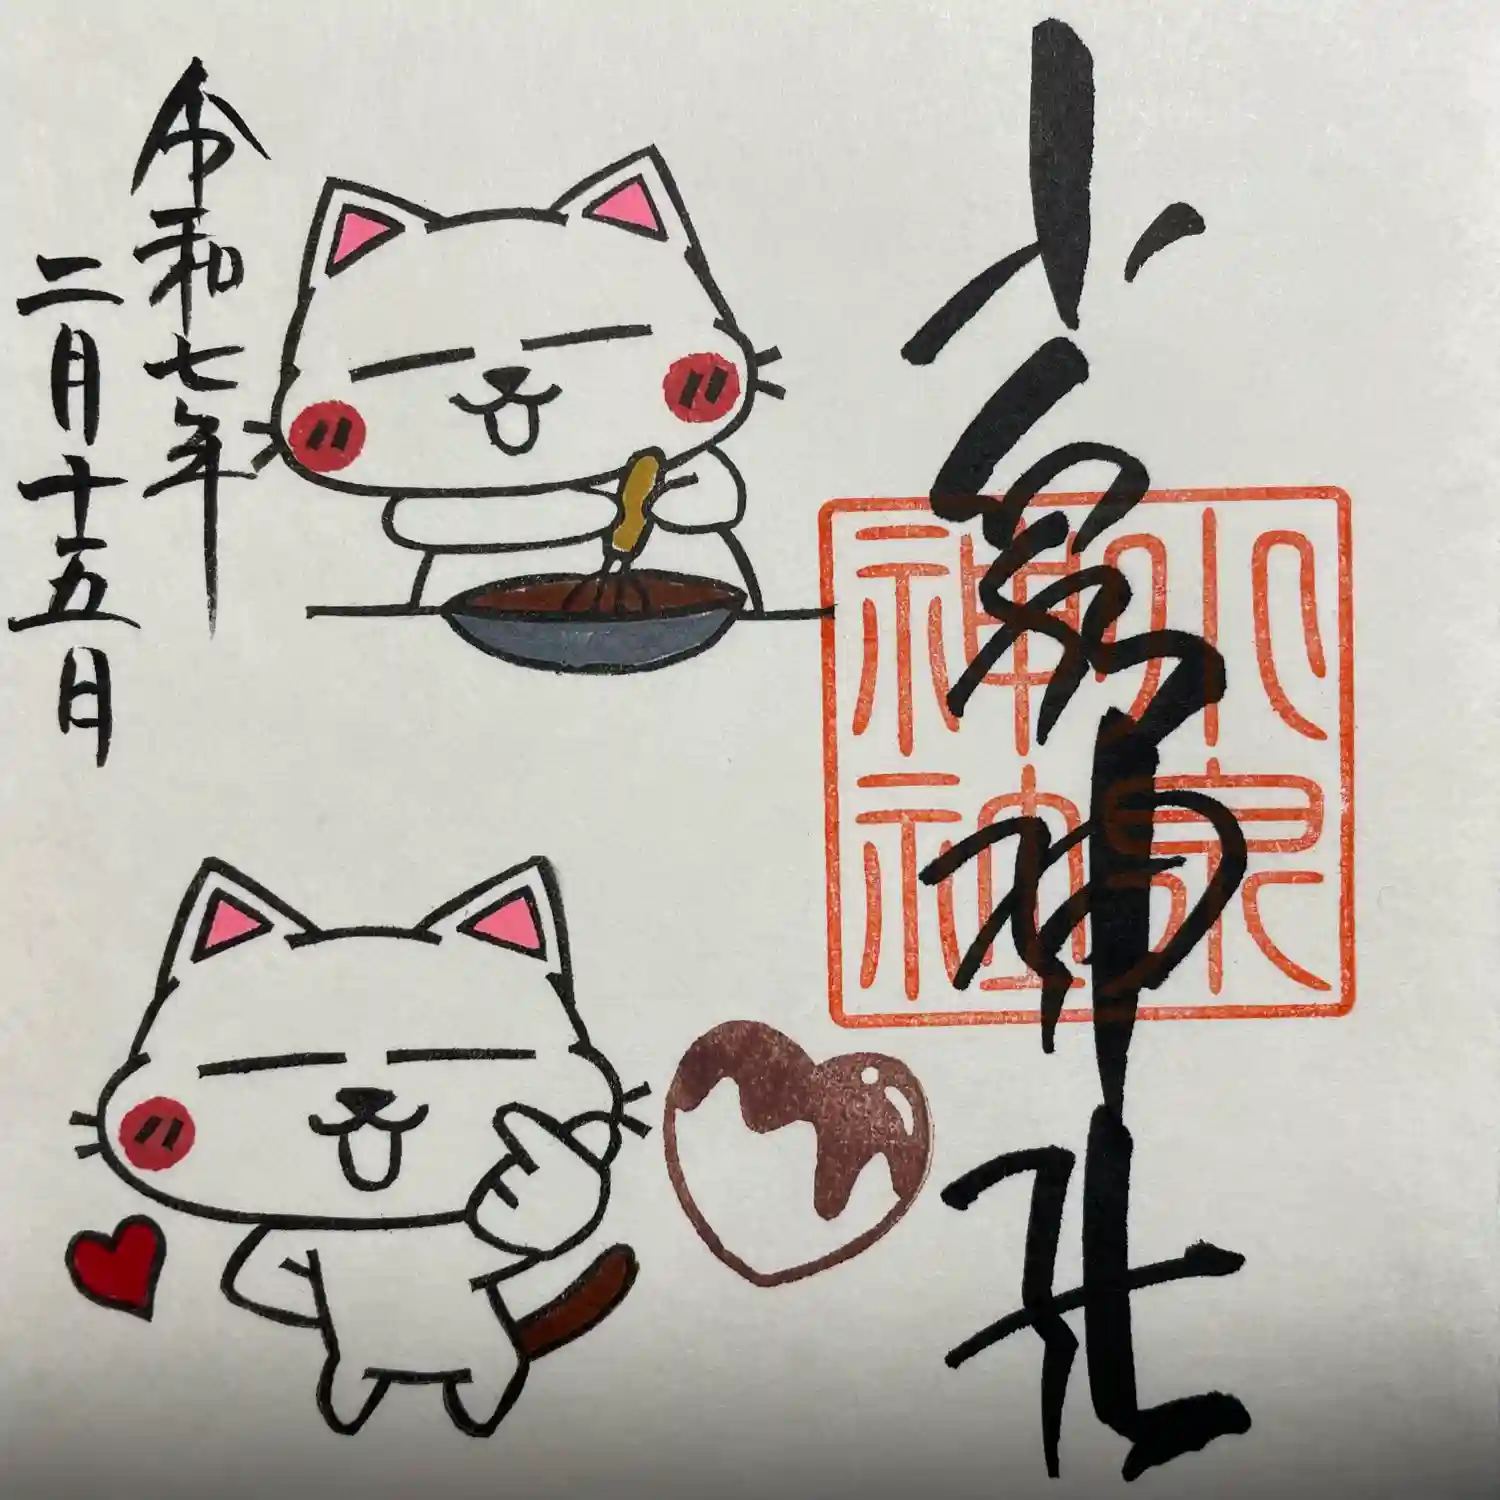 小泉神社
小泉
神社
令和七年
二月十五日